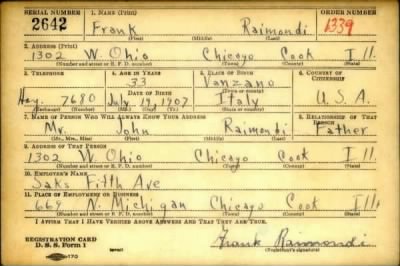 SERIAL NUMBER 1. NAME (Print) ORDER NUMBER
2642 Frank Raimondi 1339
(First) (Middle) (Last)
2. ADDRESS (Print)
1302 W. Ohio Chicago Cook Ill.
(Number and street or R. F. D. number) (Town) (County) (State)
3. TELEPHONE 4. AGE IN YEARS 5. PLACE OF BIRTH 6. COUNTRY OF CITIZENSHIP
33 Vanzano
DATE OF BIRTH (Town or county)
Hay. 7680 July 19, 1907 Italy U.S.A.
(Exchange) (Number) (Mo.) (Day) (Yr.) (State or country)
7. NAME OF PERSON WHO WILL ALWAYS KNOW YOUR ADDRESS 8. RELATIONSHIP OF THAT PERSON
Mr. John Raimondi Father
(Mr., Mrs., Miss) (First) (Middle) (Last)
9. ADDRESS OF THAT PERSON
1302 W. Ohio Chicago Cook Ill.
(Number and street or R. F. D. number) (Town) (County) (State)
10. EMPLOYER'S NAME
Saks Fifth Ave
11. PLACE OF EMPLOYMENT OR BUSINESS
669 N. Michigan Chicago Cook Ill.
(Number and street or R. F. D. number) (Town) (County) (State)
I AFFIRM THAT I HAVE VERIFIED ABOVE ANSWERS AND THAT THEY ARE TRUE.
REGISTRATION CARD
D. S. S. Form 1 Frank Raimondi
(Registrant's signature)